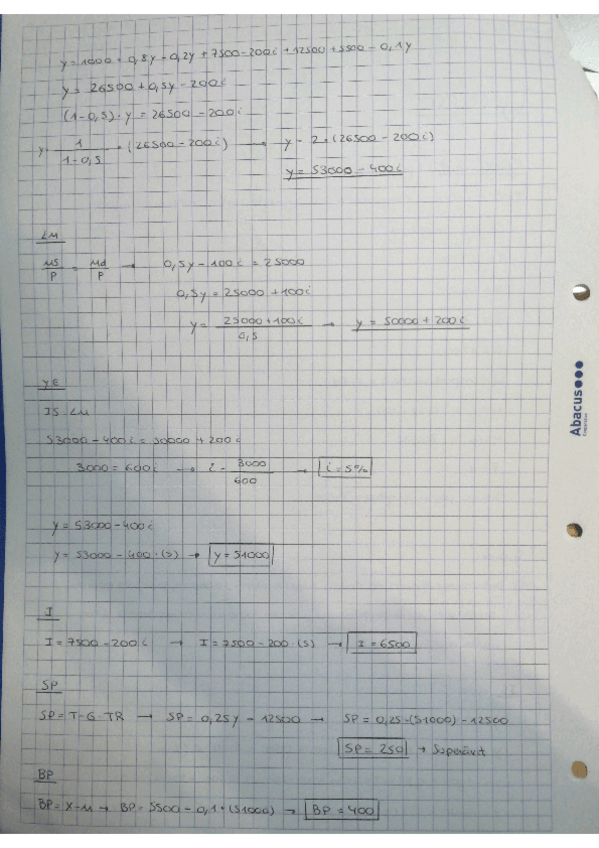 y = 1000 + 0,8y - 0,2y + 7500 - 200i + 12500 + 5500 - 0,1y
y = 26500 + 0,5y - 200i
(1-0,5) · y = 26500 - 200i
y = 1/(1-0,5) · (26500 - 200i) → y = 2 · (26500 - 200i)
y = 53000 - 400i
LM
MS/P = Md/P → 0,5y - 100i = 25000
0,5y = 25000 + 100i
y = (25000 + 100i)/0,5 → y = 50000 + 200i
YE
IS-LM
53000 - 400i = 50000 + 200i
3000 = 600i → i = 3000/600 → i = 5%
y = 53000 - 400i
y = 53000 - 400 · (5) → y = 51000
I
I = 7500 - 200i → I = 7500 - 200 (5) → I = 6500
SP
SP = T - G - TR → SP = 0,25y - 12500 → SP = 0,25 · (51000) - 12500
SP = 250 → Superávit
BP
BP = X - M → BP = 5500 - 0,1 · (51000) → BP = 400
Abacus